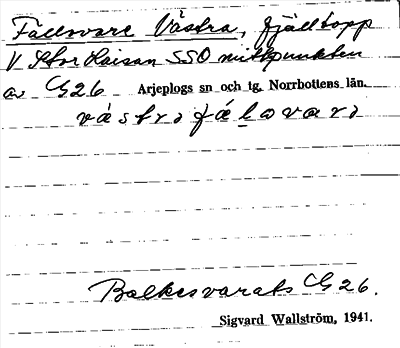 Fällvare Västra, fjälltopp
V Stor Laisan SSO mittpunkten
av G26 Arjeplogs sn och tg. Norrbottens län.
Balkesvarats G26.
Sigvard Wallström, 1941.